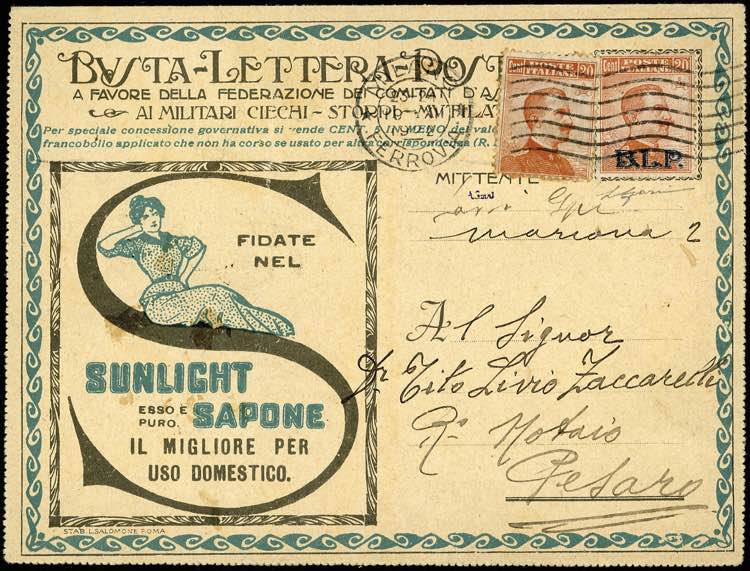 BUSTA-LETTERA-POST
A FAVORE DELLA FEDERAZIONE DEI COMITATI D'AS
AI MILITARI CIECHI - STORPI - MUTILA
Per speciale concessione governativa si vende CENT. 5 IN MENO del valo
francobollo applicato che non ha corso se usato per altra corrispondenza (R.
Cent. POSTE ITALIANE 20
Cent. POSTE ITALIANE 20
B.L.P.
FERROVIA
MITTENTE
FIDATE
NEL
SUNLIGHT
ESSO È
PURO.
SAPONE
IL MIGLIORE PER
USO DOMESTICO.
STAB. L. SALOMONE ROMA
Al Signor
Dr Tito Livio Zaccarelli
Ro Notaio
Pesaro